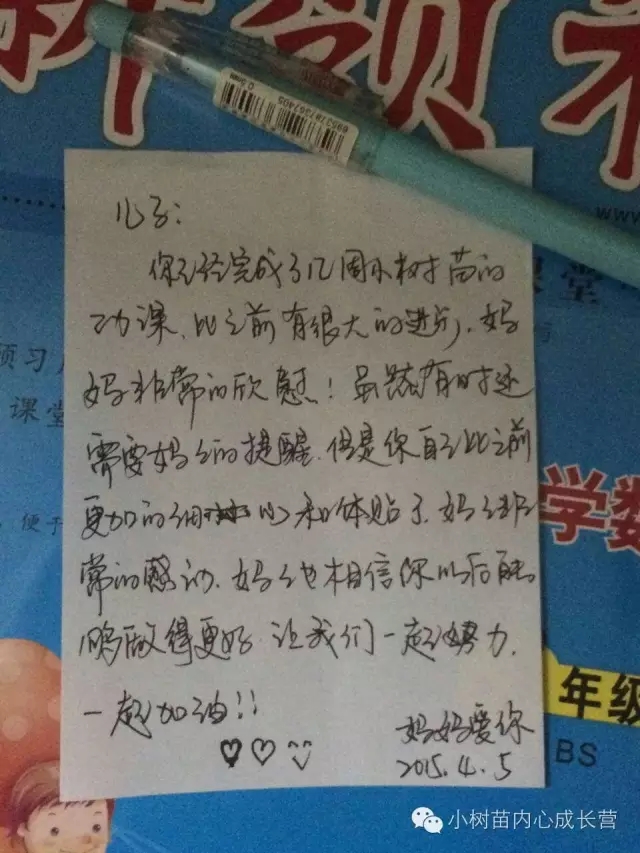 新领程
0.5mm
6953787397405
www
儿子:
你已经完成了几周小树苗的
功课、比之前有很大的进步,妈
妈非常的欣慰!虽然有时还
需要妈妈的提醒.但是你自己比之前
更加的细心和体贴了.妈妈非
常的感动.妈妈也相信你以后能
够做得更好.让我们一起努力.
一起加油!!
妈妈爱你
2015.4.5
课堂
预习
课堂
便于
学数
年级
BS
小树苗内心成长营